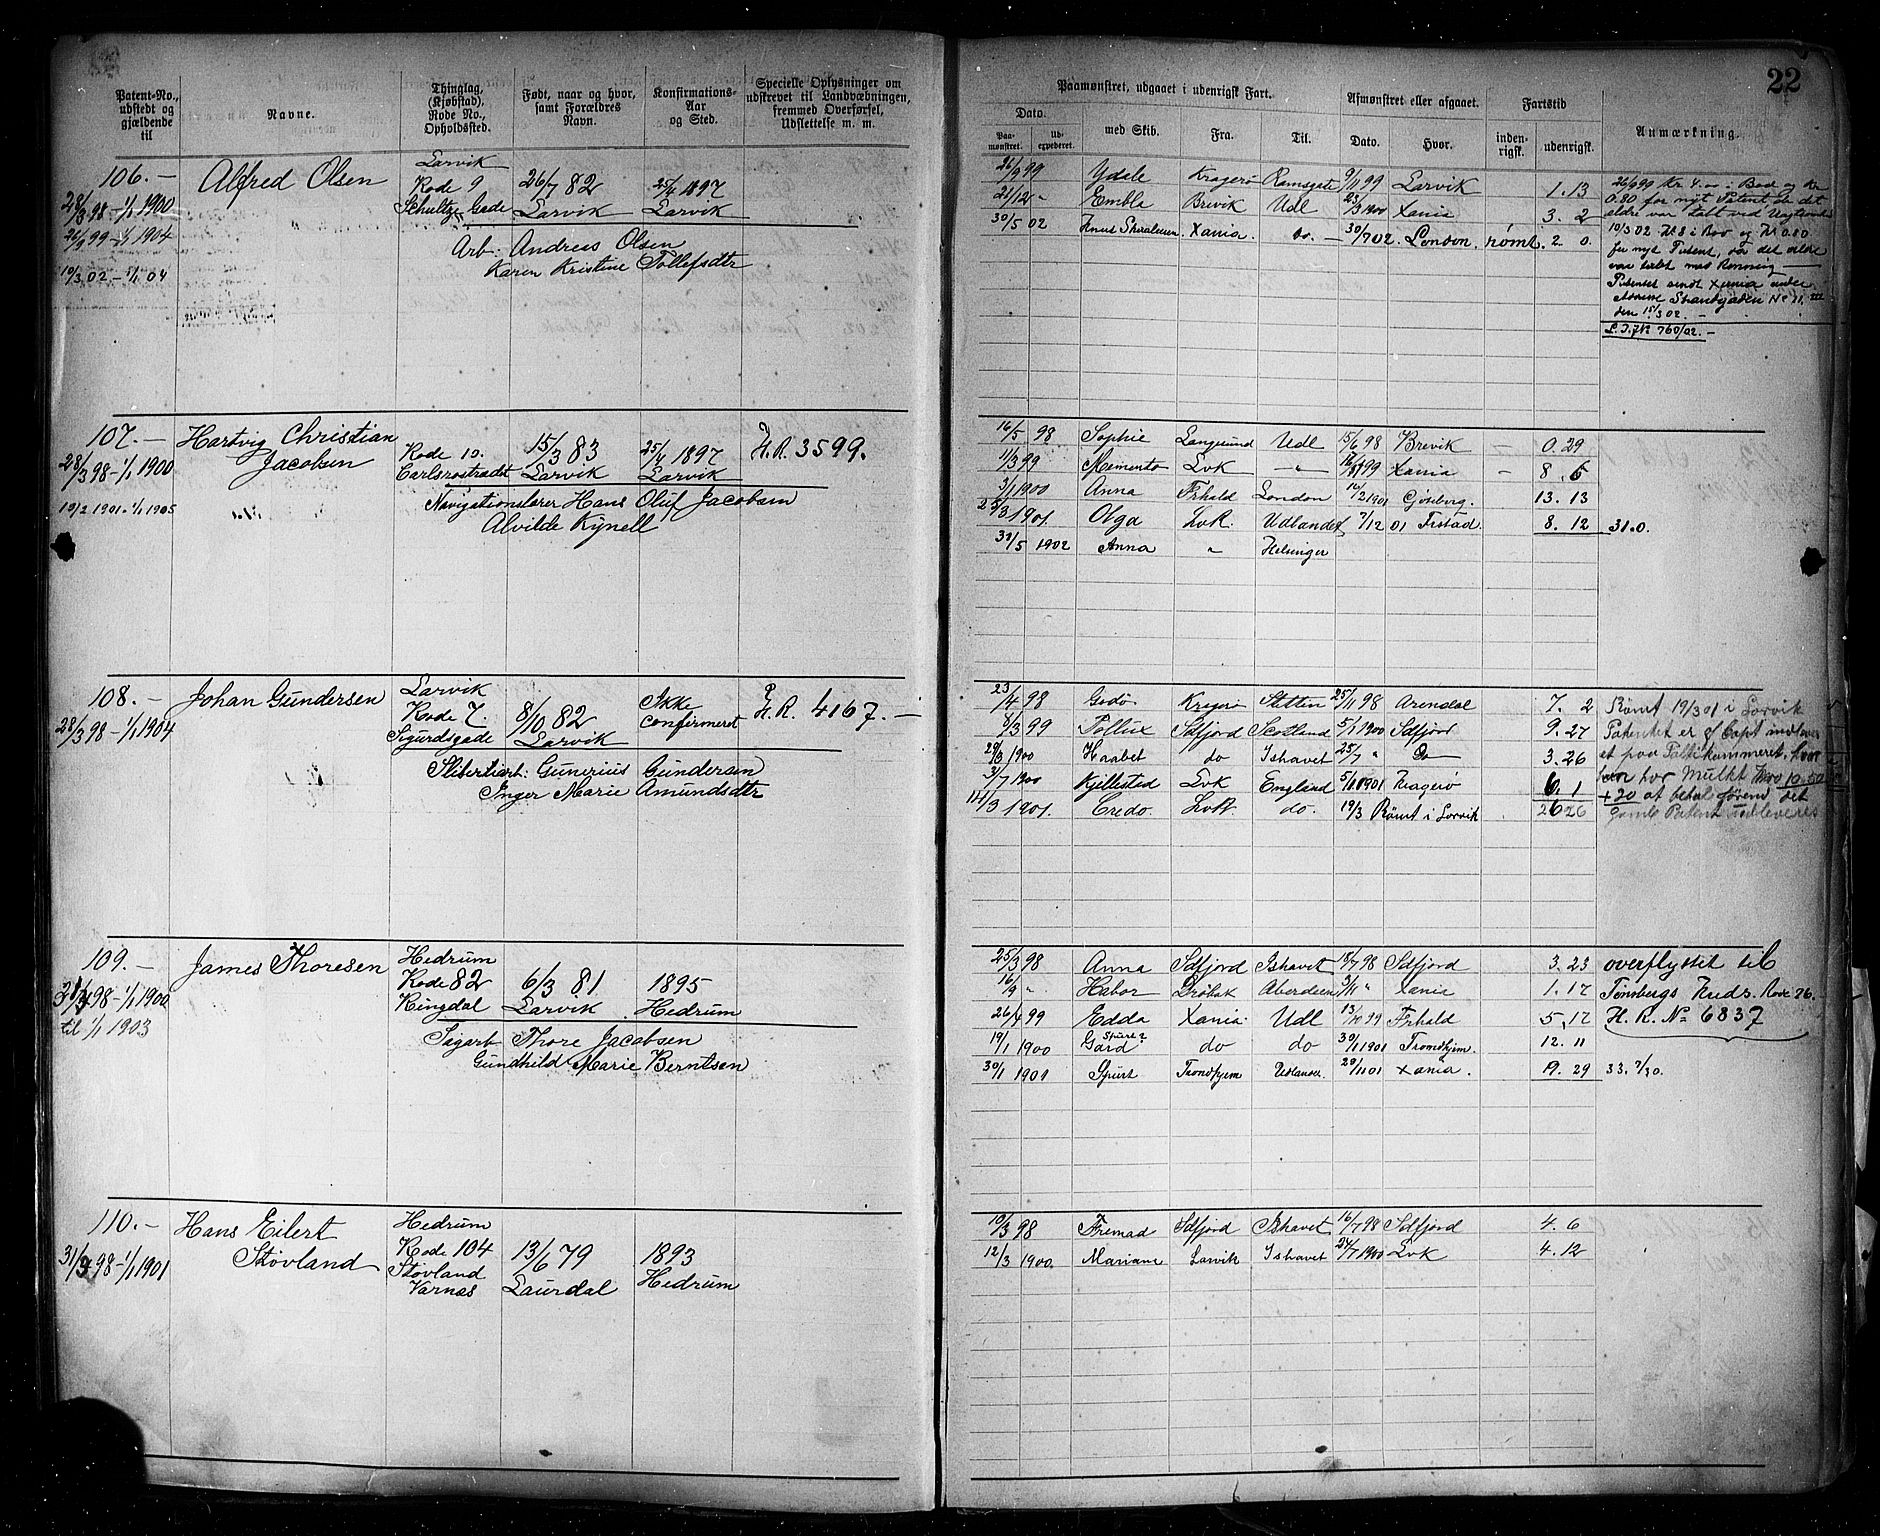 22
Patent-No., udstedt og gjældende til
Navne.
Thinglag, (Kjøbstad), Rode No., Opholdsted.
Født, naar og hvor, samt Forældres Navn.
Konfirmations-Aar og Sted.
Specielle Oplysninger om udskrevet til Landværnet, fremmed Overførsel, Udslettelse m. m.
Paamønstret, udgaaet i udenrigsk Fart.
Dato.
Paamønstret.
Udexpederet.
med Skib.
Fra.
Til.
Afmønstret eller afgaaet.
Dato.
Hvor.
Fartstid
indenrigsk.
udenrigsk.
Anmærkning.
106.—
28/3 98 – 1/1 1900
26/9 99 – 1/1 1904
10/3 02 – 1/1 04
Alfred Olsen
Larvik
Rode 9
Schultzes Gade
26/7 82
Larvik
25/4 1897
Larvik
Arb: Andreas Olsen
Karen Kristine Tollefsdtr
26/9 99 Ydale Kragerø Ramsgate 9/11 99 Larvik 1. 13
21/12 " Embla Brevik Udl 23/3 1900 Xania 3. 2
30/5 02 Xania. do. — 30/7 02. London. rømt. 2 0.
26/9 99 Kr. 4.00 i Bod og Kr
0.80 for nyt Patent, da det
ældre var tabt ved
10/3 02 Kr 8 i Bod og Kr 0.80
for nyt Patent, da det ældre
var tabt med Rømning
Patentet sendt Xania under
Adresse Strandgaden No 11. III
den 15/3 02. —
760/02. —
107.—
28/3 98 – 1/1 1900
19/2 1901 - 1/1 1905
Hartvig Christian
Jacobsen
Rode 10.
Carlsrostradt
15/3 83
Larvik
25/4 1897
Larvik
H.R. 3599.
Navigationslærer Hans Oluf Jacobsen
Alvilde Kynell
16/5 98 Sophie Langesund Udl 15/6 98 Brevik — 0. 29
11/3 99 Memento Lvk —"— 99 Xania - 8. 5
3/1 1900 Anna Frhald London 16/2 1901 Gøteborg. 13. 13
1901. Olga Lvk. Udlandet 7/12 01 Frstad. 8. 12 31.0.
1902 Anna " Helsinger
108.—
28/3 98 – 1/1 1904
Johan Gundersen
Larvik
Rode 7.
Sigurdsgade
8/10 82
Larvik
Ikke
confirmeret
H.R. 4167.—
Sliberiarb: Gunerius Gundersen
Inger Marie Amundsdtr
23/4 98 Godø Kragerø Stettin 25/11 98 Arendal 7. 2
8/3 99 Pollux Sdfjord Scotland 5/1 1900 Sdfjord 9. 27
29/3 1900 Haabet do Ishavet 25/7 " Do 3. 26
3/7 1900 Kjellestad Lvk England 5/1 1901 Kragerø 6. 1
14/3 1901. Credo. Lvk. do. 19/3 Rømt i Larvik 26 26
Rømt 19/3 01 i Larvik
Patentet er af Capt indlev
at paa Politikammeret, hvor
han har Mulkt Kro 10.50
+ 20 at betal førend det
gamle Patent udleveres
109.—
98 – 1/1 1900
til 1/1 1903
James Thoresen
Hedrum
Rode 82
Ringdal
6/3 81
Larvik
1895
Hedrum
Sigarb Thore Jacobsen
Gundhild Marie Berntsen
25/3 98 Anna Sdfjord Ishavet 18/7 98 Sdfjord 3. 23
16/9 " Habor Drøbak Aberdeen 3/11 " Xania 1. 17
26/4 99 Edda Xania. Udl 13/10 99 Frhald 5. 17
19/1 1900 Gard Spurt? do do 30/1 1901 Trondhjem. 12. 11
30/1 1901 Spurt Trondhjem Udlandet. 29/11 01 Xania. 19. 29 33. 7/30.
overflyttet til
Tønsbergs Kreds. Rode 26.
H. R. No 6837
110.—
31/3 98 – 1/1 1901
Hans Eilert
Støvland
Hedrum
Rode 104
Støvland
Varnæs
13/6 79
Laurdal
1893
Hedrum
19/3 98 Fremad Sdfjord Ishavet 16/7 98 Sdfjord 4. 6
12/3 1900. Mariane Larvik Ishavet 24/7 1900 Lvk 4. 12